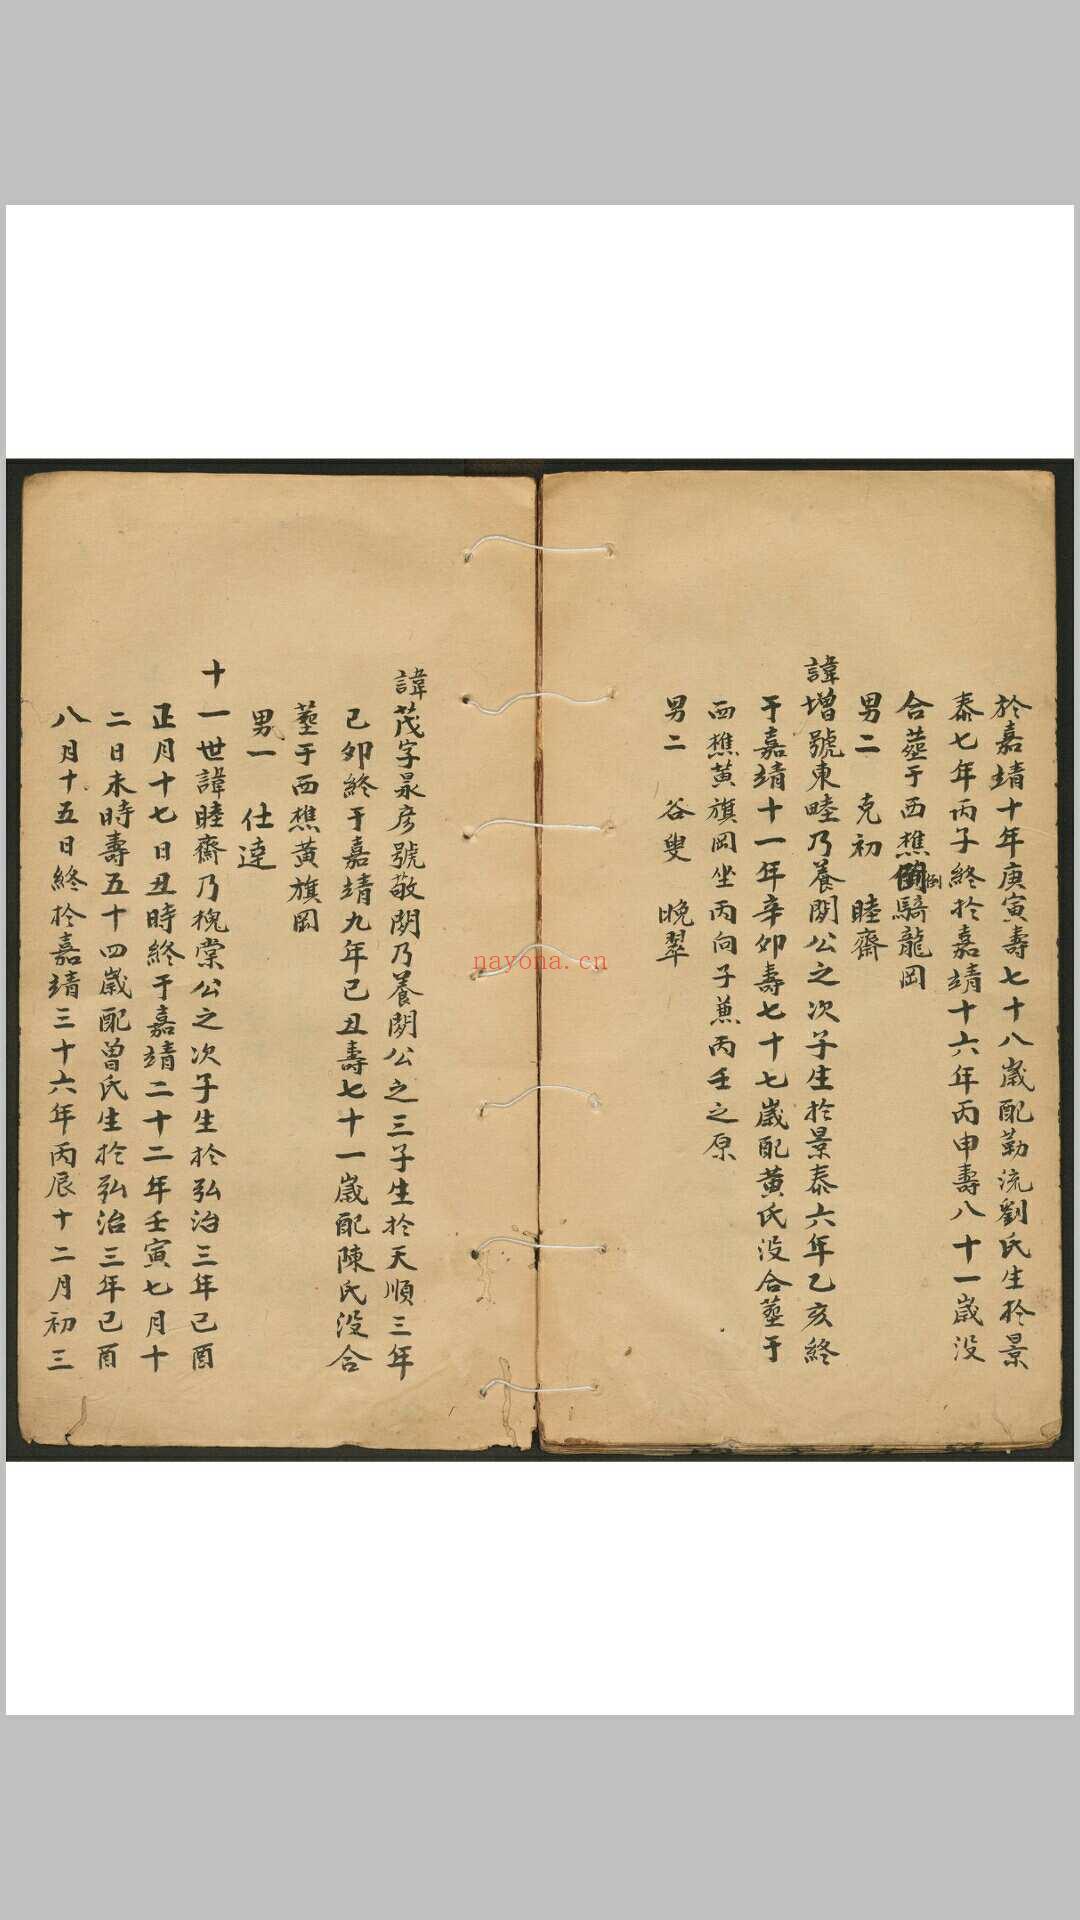 於嘉靖十年庚寅壽七十八歲配勒流劉氏生於景
泰七年丙子終於嘉靖十六年丙申壽八十一歲没
合塟于西樵倒騎龍岡
男二 克初 睦齋
諱增號東畦乃養閒公之次子生於景泰六年乙亥終
于嘉靖十一年辛卯壽七十七歲配黄氏没合塟于
西樵黄旗岡坐丙向子兼丙壬之原
男二 谷叟 晚翠
諱茂字㝡彦號敬閒乃養閒公之三子生於天順三年
己卯終于嘉靖九年己丑壽七十一歲配陳氏没合
塟于西樵黄旗岡
男一 仕達
十一世諱睦齋乃槐棠公之次子生於弘治三年己酉
正月十七日丑時終于嘉靖二十二年壬寅七月十
二日未時壽五十四歲配曾氏生於弘治三年己酉
八月十五日終於嘉靖三十六年丙辰十二月初三
nayona.cn